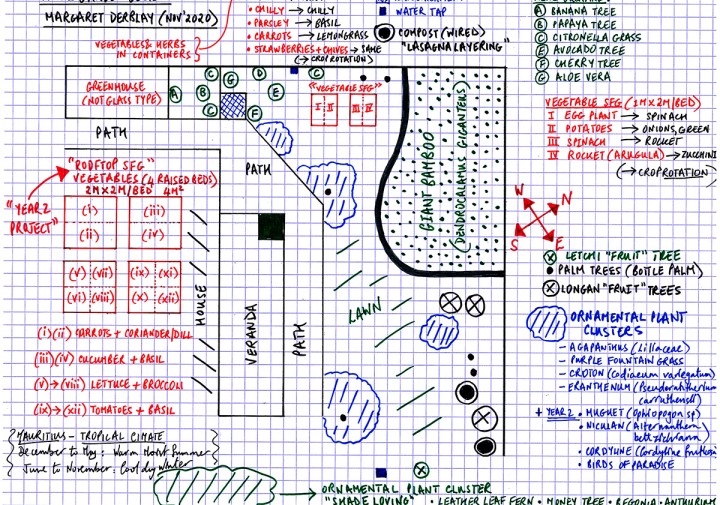 MARGARET DERBLAY (NOV'2020)
VEGETABLES & HERBS
IN CONTAINERS
• CHILLY → CHILLY
• PARSLEY → BASIL
• CARROTS → LEMONGRASS
• STRAWBERRIES + CHIVES → SAME
(→ CROP ROTATION)
WATER TAP
COMPOST (WIRED)
"LASAGNA LAYERING"
A BANANA TREE
B PAPAYA TREE
C CITRONELLA GRASS
E AVOCADO TREE
F CHERRY TREE
G ALOE VERA
GREENHOUSE
(NOT GLASS TYPE)
A
B
C
C
G
D
E
F
C
C
"VEGETABLE SFG"
I II
III IV
PATH
PATH
GIANT BAMBOO
(DENDROCALAMUS GIGANTEUS)
VEGETABLE SFG (2M×2M/BED)
I EGG PLANT → SPINACH
II POTATOES → ONIONS, GREEN
III SPINACH → ROCKET
IV ROCKET (ARUGULA) → ZUCCHINI
(→ CROP ROTATION)
W
N
S
E
"ROOFTOP SFG"
VEGETABLES (4 RAISED BEDS)
2M×2M/BED 4M²
"YEAR 2
PROJECT"
(i) (iii)
(ii) (iv)
(v) (vii) (ix) (xi)
(vi) (viii) (x) (xii)
HOUSE
VERANDA
PATH
LAWN
(i)(ii) CARROTS + CORIANDER/DILL
(iii)(iv) CUCUMBER + BASIL
(v) → (viii) LETTUCE + BROCCOLI
(ix) → (xii) TOMATOES + BASIL
MAURITIUS - TROPICAL CLIMATE
December to May: Warm Moist Summer
June to November: Cool dry Winter
LETCHI "FRUIT" TREE
PALM TREES (BOTTLE PALM)
LONGAN "FRUIT" TREES
ORNAMENTAL PLANT
CLUSTERS
- AGAPANTHUS (Liliaceae)
- PURPLE FOUNTAIN GRASS
- CROTON (Codiaeum variegatum)
- ERANTHEMUM (Pseuderanthemum
+ YEAR 2 • MUGUET (Ophiopogon sp)
• CORDYLINE (Cordyline
• BIRDS OF PARADISE
ORNAMENTAL PLANT CLUSTER
"SHADE LOVING" • LEATHER LEAF FERN • MONEY TREE • BEGONIA • ANTHURIUM